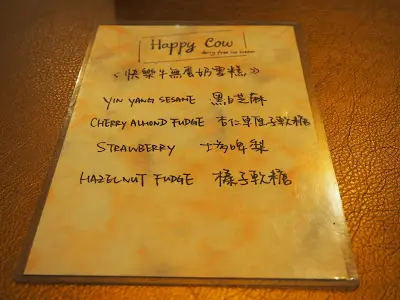 Happy Cow
dairy free ice cream
快樂牛無蛋奶雪糕
YIN YANG SESAME 黑白芝麻
CHERRY ALMOND FUDGE 杏仁車厘子軟糖
STRAWBERRY 士多啤梨
HAZELNUT FUDGE 榛子軟糖